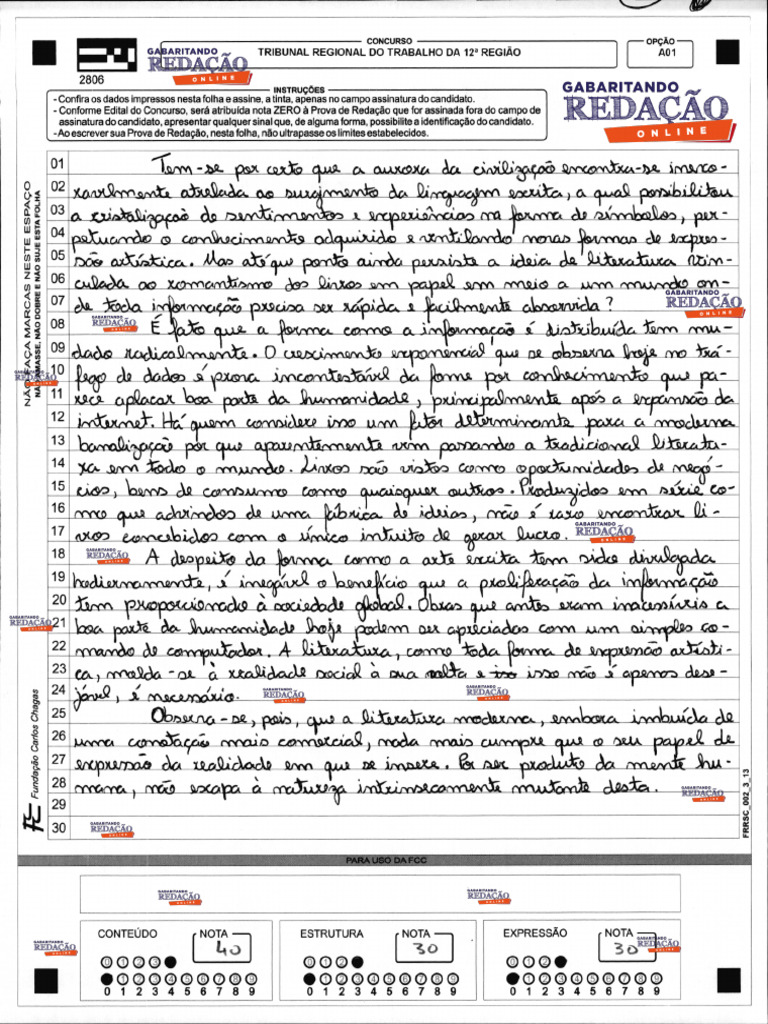 CONCURSO
TRIBUNAL REGIONAL DO TRABALHO DA 12ª REGIÃO
OPÇÃO
A01
GABARITANDO
REDAÇÃO
ONLINE
2806
INSTRUÇÕES
- Confira os dados impressos nesta folha e assine, a tinta, apenas no campo assinatura do candidato.
- Conforme Edital do Concurso, será atribuída nota ZERO à Prova de Redação que for assinada fora do campo de
assinatura do candidato, apresentar qualquer sinal que, de alguma forma, possibilite a identificação do candidato.
- Ao escrever sua Prova de Redação, nesta folha, não ultrapasse os limites estabelecidos.
GABARITANDO
REDAÇÃO
ONLINE
NÃO FAÇA MARCAS NESTE ESPAÇO
NÃO AMASSE, NÃO DOBRE E NÃO SUJE ESTA FOLHA
01 Tem-se por certo que a aurora da civilização encontra-se inexo-
02 ravelmente atrelada ao surgimento da linguagem escrita, a qual possibilitou
03 a cristalização de sentimentos e experiências na forma de símbolos, per-
04 petuando o conhecimento adquirido e ventilando novas formas de expres-
05 são artística. Mas até que ponto ainda persiste a ideia de literatura vin-
06 culada ao romantismo dos livros em papel em meio a um mundo on-
07 de toda informação precisa ser rápida e facilmente absorvida?
08 É fato que a forma como a informação é distribuída tem mu-
09 dado radicalmente. O crescimento exponencial que se observa hoje no trá-
10 fego de dados é prova incontestável da fome por conhecimento que pa-
11 rece aplacar boa parte da humanidade, principalmente após a expansão da
12 internet. Há quem considere isso um fator determinante para a moderna
13 banalização por que aparentemente vem passando a tradicional literatu-
14 ra em todo o mundo. Livros são vistos como oportunidades de negó-
15 cios, bens de consumo como quaisquer outros. Produzidos em série co-
16 mo que advindos de uma fábrica de ideias, não é raro encontrar li-
17 vros concebidos com o único intuito de gerar lucro.
18 A despeito da forma como a arte escrita tem sido divulgada
19 hodiernamente, é inegável o benefício que a proliferação da informação
20 tem proporcionado à sociedade global. Obras que antes eram inacessíveis a
21 boa parte da humanidade hoje podem ser apreciadas com um simples co-
22 mando de computador. A literatura, como toda forma de expressão artísti-
23 ca, molda-se à realidade social à sua volta e isso não é apenas dese-
24 jável, é necessário.
25 Observa-se, pois, que a literatura moderna, embora imbuída de
26 uma conotação mais comercial, nada mais cumpre que o seu papel de
27 expressão da realidade em que se insere. Por ser produto da mente hu-
28 mana, não escapa à natureza intrinsecamente mutante desta.
29
30
Fundação Carlos Chagas
FRRSC_002_3_13
PARA USO DA FCC
CONTEÚDO
NOTA
40
0 1 2 3 4 5 6 7 8 9
ESTRUTURA
NOTA
30
0 1 2 3 4 5 6 7 8 9
EXPRESSÃO
NOTA
30
0 1 2 3 4 5 6 7 8 9